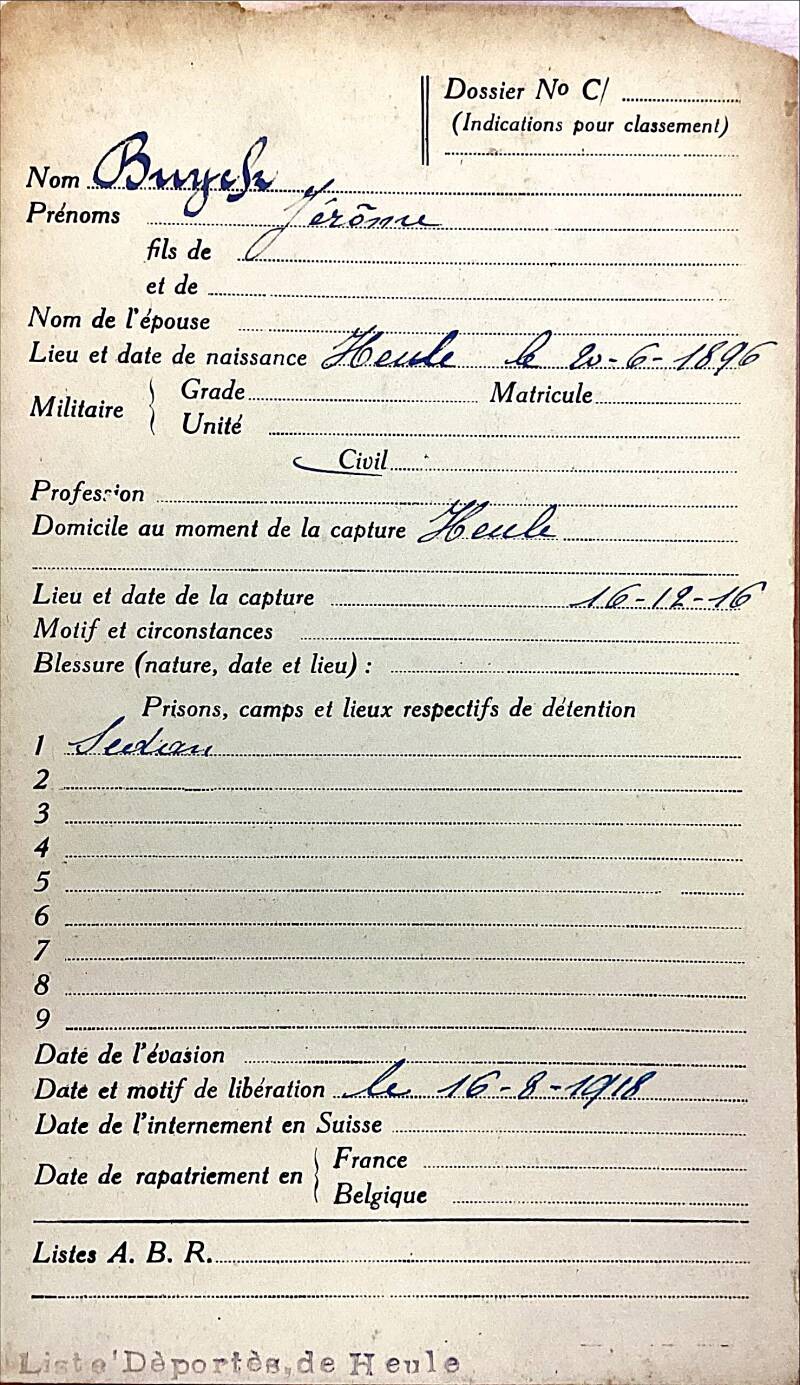 Dossier No C/
(Indications pour classement)
Nom Buyck
Prénoms Jérôme
fils de
et de
Nom de l'épouse
Lieu et date de naissance Heule le 20-6-1896
Militaire Grade Matricule
Unité
Civil
Profession
Domicile au moment de la capture Heule
Lieu et date de la capture 16-12-16
Motif et circonstances
Blessure (nature, date et lieu) :
Prisons, camps et lieux respectifs de détention
1 Sedan
2
3
4
5
6
7
8
9
Date de l'évasion
Date et motif de libération le 16-8-1918
Date de l'internement en Suisse
Date de rapatriement en France
Belgique
Listes A. B. R.
Liste'Dèportès,de Heule